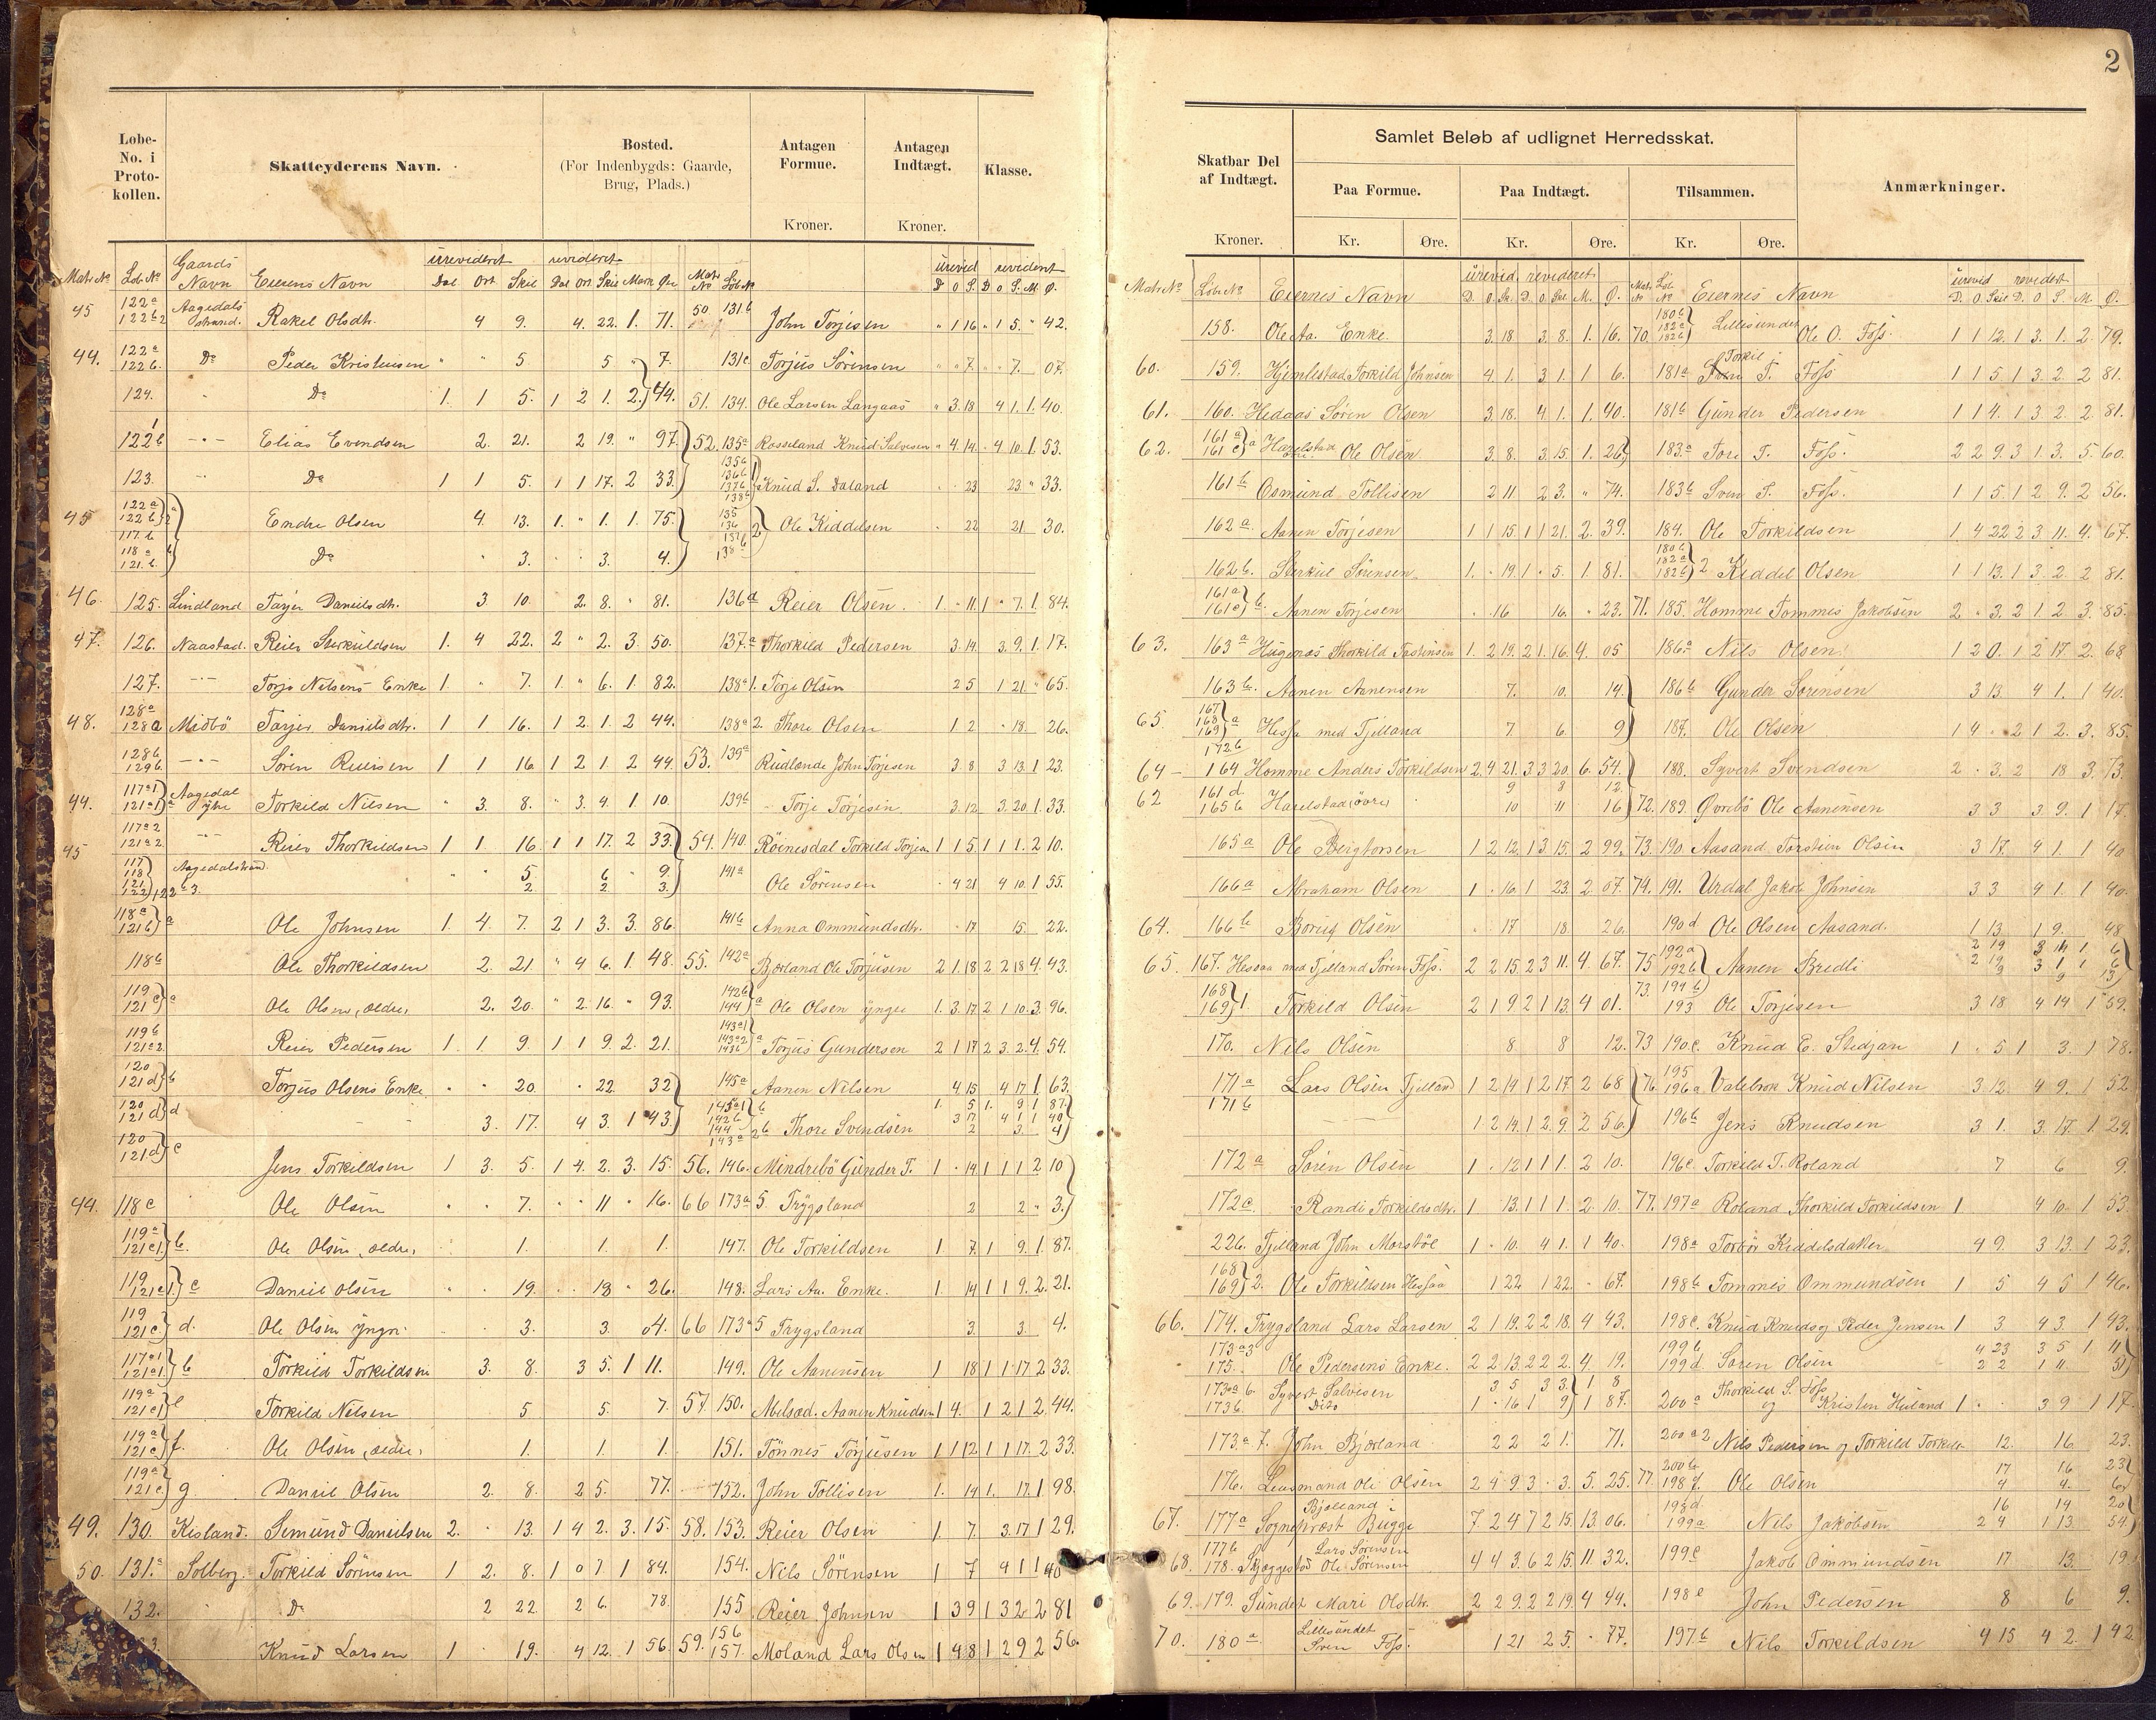 2
Løbe-No. i Proto-kollen.
Skatteyderens Navn.
Bosted. (For Indenbygds: Gaarde, Brug, Plads.)
Antagen Formue. Kroner.
Antagen Indtægt. Kroner.
Klasse.
Matr No Løb No Gaards Navn Eierens Navn urevideret Dal. Ort. Skil revideret Dal Ort. Skil Mark Øre Matr No Løb No urevid D O S. revideret D O S. M Ø.
45 122a 122b2 Aagedals strand. Rakel Olsdtr. 4 9. 4. 22. 1. 71. 50 131b John Torjesen " 1 16 " 1 5. " 42.
44. 122a 122b. Do Peder Kristensen " " 5 5 " 7. 131c Torjus Sörensen " " 7. " 7. 07.
124. Do 1. 1 5. 1 2 1. 2. 44. 51. 134. Ole Larsen Langaas " 3. 18 4 1. 1. 40.
122b Elias Evendsen 2. 21. 2 19. " 97. 52. 135a Rosseland Knud Salvesen " 4. 14. " 4 10. 1. 53.
123. Do 1 1 5. 1 1 17. 2 33. 135b 136b 137b 138b Knud S. Daland 23 23. " 33.
45 122a 122b 117.b Endre Olsen 4. 13. 1. " 1. 1. 75. 135 136 137b 138a 2 Ole Kiddelsen 22 21. 30.
118a 121.b. Do 3. 3. 4.
46. 125. Lindland Tarjer Danielsdtr. 3 10. 2. 8. " 81. 136a Reier Olsen. 1. " 11. 1 " 7. 1. 84.
47. 126. Naastad. Reier Sterkildsen 1. 4 22. 2 " 2. 3. 50. 137.a Thorkild Pedersen 3. 14. 3. 9. 1. 17.
127. Torjo Nilsens Enke 1. " 7. 1. " 6. 1. 82. 138a1. Torje Olsen 2 5 1 21. " 65.
48. 128a 128a Midbö Tarjer Danielsdtr. 1 1 16. 1 2. 1. 2 44. 138a2. Thore Olsen 1 2 18. 26.
128b 129b. Sören Reiersen 1 1 16. 1 2 1. 2 44. 53. 139a Rudlande John Torjesen 3. 8 3 13. 1 23.
44. 117a1 121a1 a Aagedal ytre Torkild Nilsen " 3. 8. " 3. 4. 1. 10. 139b Torje Torjesen. 3. 12. 3. 20. 1. 33.
117a2 121a2 Reier Thorkildsen 1 1. 16. 1 1 17. 2 33. 54. 140. Röinesdal Torkild Torjesen 1 1 5. 1 1 1. 2 10.
45 117 118 121 122 122a3. Aagedalstrand. 5. 2. 6 2. 9. 3. 141a Ole Sörensen 4 21 4 10. 1. 55.
118a 121b a Ole Johnsen 1. 4. 7. 2 1 3. 3. 86. 141b Anna Ommundsdtr. 17 15. 22.
118b Ole Thorkildsen 2. 21. " 4 6. 1. 48. 55. 142a Bjærland Ole Torjusen 2 1. 18 2 2 18 4. 43.
119 121c a Ole Olsen, ældre, 2. 20. " 2. 16. " 93. 142b 144 a Ole Olsen yngre 1. 3. 17. 2 1 10. 3. 96.
119b 121a2. Reier Pedersen 1. 1. 9. 1 1 9. 2. 21. 143a1 143a2 143b a Torjus Gundersen 2 1 17 2 3. 2. 4. 54.
120 121d b Torjus Olsens Enke " " 20. " 22. 32 145a Aanen Nilsen 4. 15 4 17 1. 63.
120 121d d 3. 17. 4 3. 1 43. 145a1 142b 144 143a Thore Svendsen
120 121d c Jens Torkildsen 1 3. 5. 1 4. 2. 3. 15. 56. 146. Mindrebö Gunder T. 1 " 14 1 1 1 2 10
44. 118c Ole Olsen 7. 11 " 16. 66 173a5 Trygsland 2 2 " 3.
119a 121c1 b. Ole Olsen, ældre, 1. 1. 1. 147. Ole Torkildsen 1 7. 1 9. 1. 87.
119 121c1 c Daniel Olsen 19. 18 " 26. 148. Lars Aa. Enke. 1. 14 1 1 9. 2. 21.
119 121c d. Ole Olsen yngr. 3. 3. 04. 66 173a5 Trygsland 3. 3. 4.
117a1 121a1. b Torkild Torkildsen 3. 8. 3 5. 1 11. 149. Ole Aanensen 1 18 1 1 17 2 33.
119a 121c1 e Torkild Nilsen 5 5. 7. 57. 150. Melsod. Aanen Knudsen 1 4. 1 2 1 2 44.
119a 121c f. Ole Olsen, ældre, 1. 1. 1. 151. Tönnes Torjusen 1 1 12 1 1 17. 2 33.
119a 121c g Daniel Olsen 2. 8. 2 5. 77. 152. John Tollisen 1. 14 1. 17. 1 98.
49. 130. Kisland. Semund Danielsen 2. 13. 1 4 2. 3. 15. 58. 153. Reier Olsen 1. 7. 3. 17 1 29.
50. 131.a Solberg. Torkild Sörensen 1 2. 8. 1 0 7. 1 84. 154. Nils Sörensen 1 7 4 1 1 40
132. Do 2 22. 2 6. 78. 155 Reier Johnsen 1 3 9 1 3 2 2 81
Knud Larsen 1 19. 4 12. 1 56. 59. 156 157. Moland Lars Olsen 1 4 8 1 2 9 2 56.
Skatbar Del af Indtægt. Kroner.
Samlet Beløb af udlignet Herredsskat.
Paa Formue. Kr. Øre.
Paa Indtægt. Kr. Øre.
Tilsammen. Kr. Øre.
Anmærkninger.
Matr No Løb No Eiernes Navn urevid. D. O. Sk. revideret D. O. Skl. M. Ø. Matr. No Løb No Eiernes Navn urevid D. O. Skil revidert D. O. S. M. Ø.
158. Ole Aa. Enke. 3. 18 3. 8. 1. 16. 70. 180b 182a 182b Lillesunder Ole O. Foss. 1 1 12. 1 3. 1. 2. 79.
60. 159. Hjemlestad Torkild Johnsen 4. 1. 3 1. 1 6. 181a Torkil T. Foss 1 1 5. 1 3. 2. 2 81.
61. 160. Hedaas Sören Olsen 3. 18. 4 1. 1. 40. 181b Gunder Pedersen 1 1 4. 1 3 2. 2. 81.
62. 161a 161c a Harelstad Ole Olsen 3. 8. 3. 15 1. 26 183.a Tore T. Foss. 2 2 9. 3 1. 3. 5. 60.
161b Osmund Tollisen 2 11 2 3. " 74. 183b Sven S. Foss. 1 1 5. 1 2 9. 2 56.
162a Aanen Torjesen 1 1 15. 1 1 21. 2. 39. 184. Ole Torkildsen 1 4 22 2 3. 11. 4. 67.
162b. Sterkul Sörensen 1. " 19. 1 " 5. 1. 81. 180b 182a 182b 2 Kiddel Olsen 1 1 13. 1 3. 2. 2 81.
161a 161c b. Aanen Torjesen " 16 16. " 23. 71. 185. Homme Tommes Jakobsen 2 " 3. 2 1. 2 3. 85.
63. 163a Haugenes Thorkild Tostensen 1. 2 19. 2 1. 16. 4. 05 186.a Nils Olsen 1 2 0. 1 2 17. 2. 68
163b. Aanen Aanensen 7. 10. 14 186b Gunder Sörensen 3 13. 4 1. 1 40.
65. 167 168 169 a 172b Hessa med Tjelland 7 6. 9 187. Ole Olsen 1 4 2 1 2. 3. 85.
64 164 Homme Anders Torkildsen 2. 4 21. 3 3 20. 6. 54. 188. Syvert Svendsen 2 " 3. 2 18 3. 73.
62 161d. 165b Harelstad övre 9 10 8 11 12. 16 72. 189. Øvrebö Ole Aanensen 3 3 3 9. 1 17.
165a Ole Bergtorsen 1 2 12. 1 3 15. 2 99. 73. 190. Aasand Torstein Olsen 3 17. 4 1. 1 40
166a Abraham Olsen 1 " 16. 1 23. 2 07. 74. 191. Urdal Jakob Johnsen 3 3 4 1. 1 40.
64. 166b Börus Olsen 17 18. 26. 190d Ole Olsen Aasand. 1 13 1 9. 48
65. 167. Hessaa med Tjelland Sören Foss. 2 2 15. 2 3 11. 4. 67. 75 192a 192b Aanen Bredli
168 169 1. Torkild Olsen 2 1 9 2 1 13. 4 01. 73. 191b 193 Ole Torjesen 3 18 4 14 1 59.
170. Nils Olsen 8 8 12. 73 190c. Knud E. Stedjan 1 5 1 3. 1 78.
171a Lars Olsen Tjelland 1 2 14 1 2 17. 2 68 76. 195 196a Valebrok Knud Nilsen 3. 12. 4 9. 1 52
171b 1 2 14. 1 2. 9. 2 56. 196b Jens Knudsen 3 1. 3. 17. 1. 29.
172a Sören Olsen 1 " 12 1 1 1. 2 10. 196c. Torkild T. Roland 7 6 9.
172c. Randi Torkildsdtr. 1 13. 1 1 1. 2 10. 77. 197a Roland Thorkild Torkildsen 1 4 10. 1 53.
226. Tjelland John Morsböe 1 " 10. 4 1. 1 40. 198a Torbör Kiddelsdatter 4 9. 3 13. 1 23.
168 169 2. Ole Torkildsen Hessaa 1 22 1 22. 67. 198b Tommes Ommundsen 1 5 4 5 1 46.
66. 174. Trygsland Lars Larsen 2 1 19. 2 2 18. 4 43. 198c. Knud Knuds og Peder Jensen 1 3 4 3. 1 43.
173a3 175. Ole Pedersens Enke. 2 2 13. 2 2 2. 4 19. 199b 199d Sören Olsen 4 23 2 2 3 5 1 11 1 11. 51
173a6. 173b. Syvert Salvesen Dito 3. 5 3 3. 1 8 1 " 16 1 9 1 87. 200a Thorkild S. Foss og Kristen Heiland 1 3 9 1 17.
173a7. John Bjærland 2 2 2 1. 71. 200a2 Nils Pedersen og Torkild Torkels 12. 16. 23.
176. Leusmand Ole Olsen 2 4 9 3 " 3. 5. 25. 77. 200b 198f. Ole Olsen 17 4 16 4. 23 6
67. 177a Bjelland i Sogneprest Bugge 7 2 4 7 2 15. 13. 06. 198d 199a Nils Jakobsen 16 2 4 14 1 13. 20 54.
68. 177b 178. Lars Sörensen Skjæggestad Ole Sörensen 4 4 3. 6 2 15. 11. 32. 199c Jakob Ommundsen 17 13. 19.
69. 179. Sundet Mari Olsdtr. 2 2 9. 2 2 19. 4 44. 198e John Pedersen 8 6 9.
70. 180a Lillesundet Sven Foss. 1 21 2 5. 77. 197.b Nils Torkildsen 4 15 4 2. 1 42